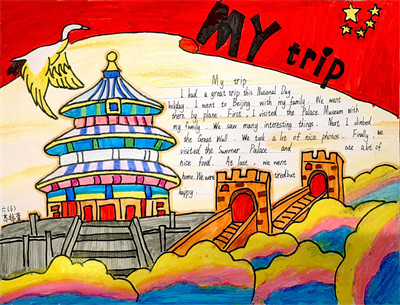 MY trip
My trip
I had a great trip this National Day
holiday. I went to Beijing with my family. We went
there by plane. First, I visited the Palace Museum with
my family. We saw many interesting things. Next, I climbed
the Great Wall. We took a lot of nice photos. Finally, we
visited the Summer Palace and ate a lot of
nice food. At last, we went
home. We were tired but
happy.